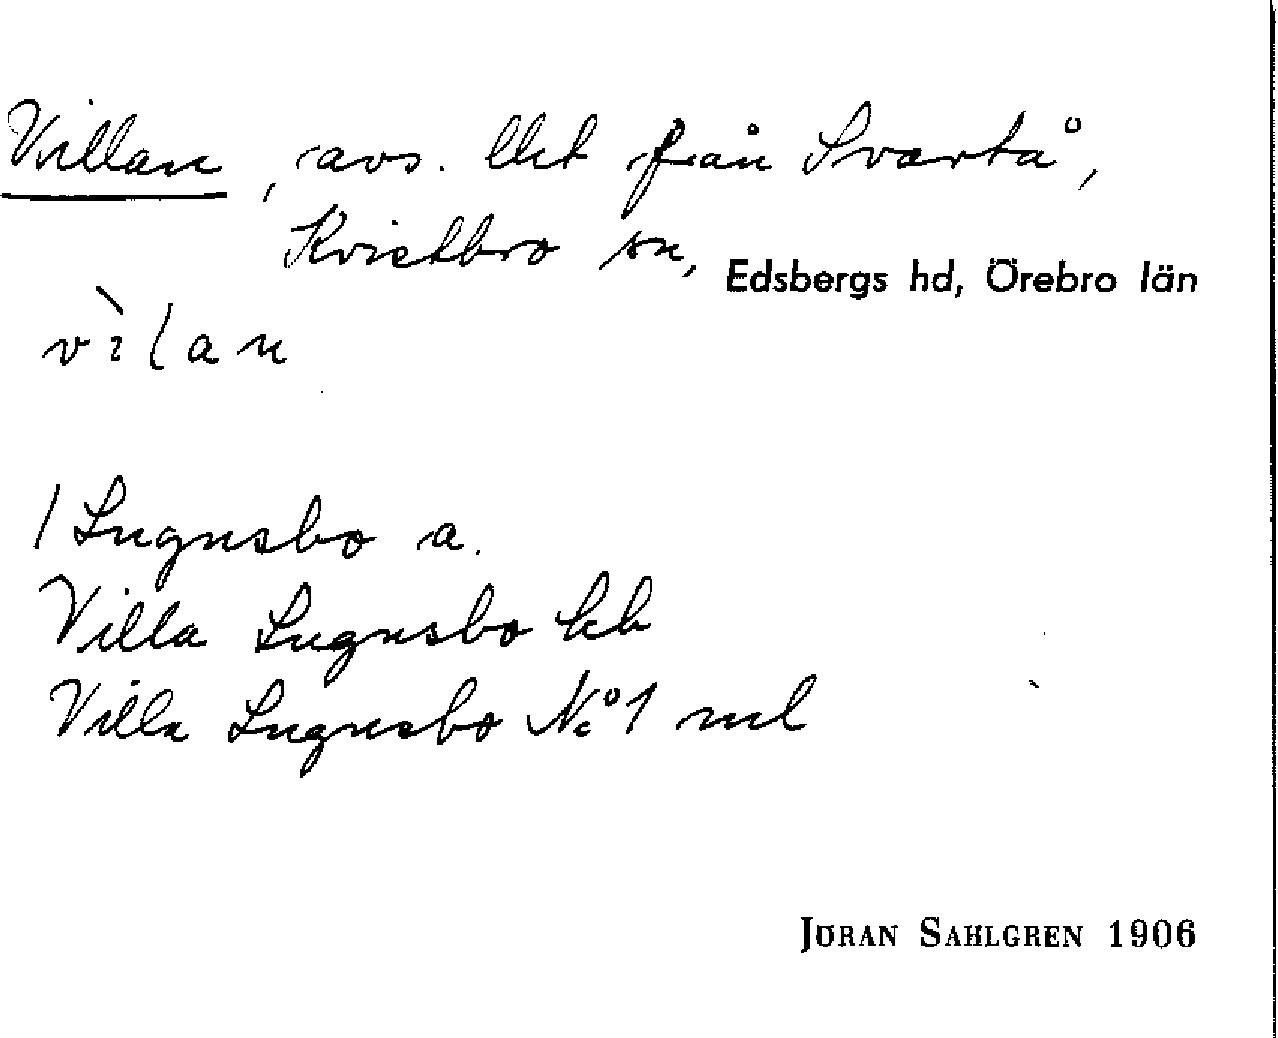 Villan, avs. lht från Svartå,
Kvistbro sn, Edsbergs hd, Örebro län
vìlan
/ Lugnsbo a.
Villa Lugnsbo kb
Villa Lugnsbo No 1 ml
JÖRAN SAHLGREN 1906